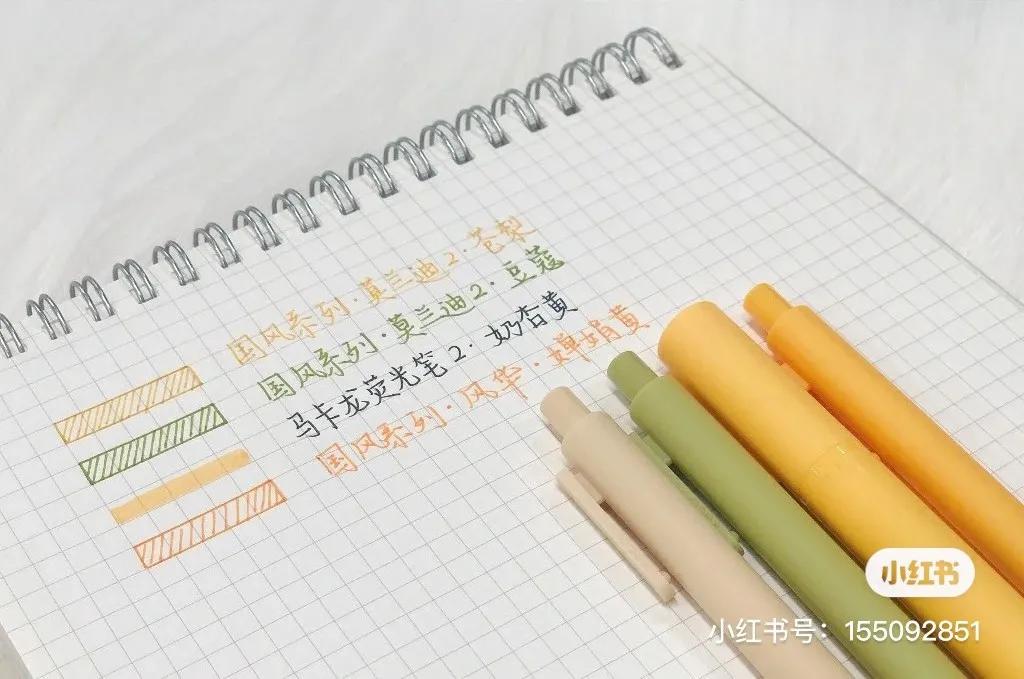 国风系列·莫兰迪2·苍梨
国风系列·莫兰迪2·豆蔻
马卡龙荧光笔2·奶杏黄
国风系列·风华·婵娟黄
小红书
小红书号：155092851